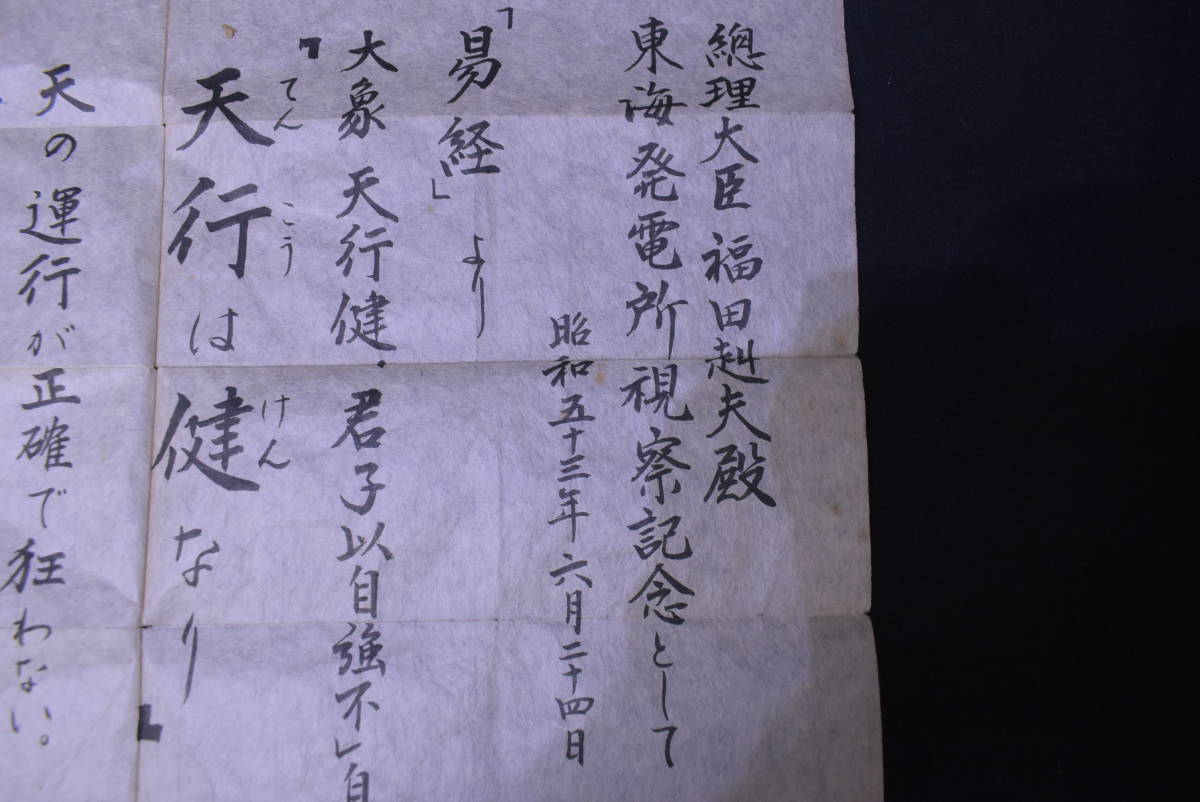 總理大臣 福田赳夫殿
東海発電所視察記念として
昭和五十三年六月二十四日
「易経」より
大象 天行健.君子以自強不」自
『天行は健なり』
てん こう けん
天の運行が正確で狂わない。